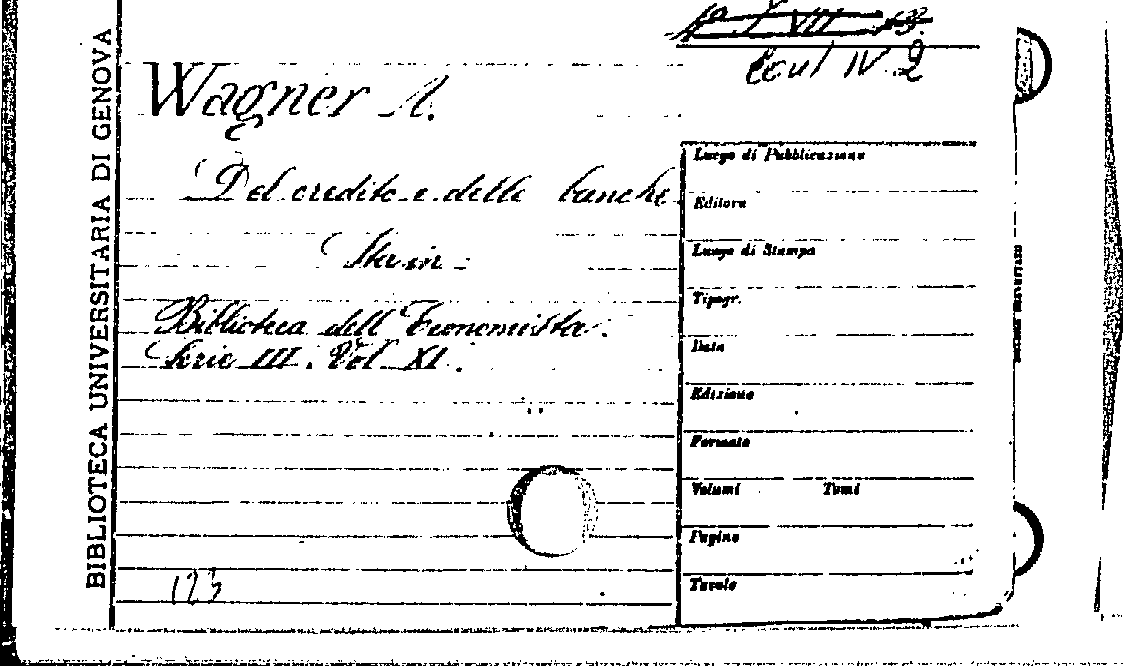 IV 2
Wagner A.
Del credito e delle banche
Biblioteca dell'Economista.
Serie III. Vol XI.
123
BIBLIOTECA UNIVERSITARIA DI GENOVA
Luogo di Pubblicazione
Editore
Luogo di Stampa
Tipogr.
Data
Edizione
Formato
Volumi Tomi
Pagine
Tavole